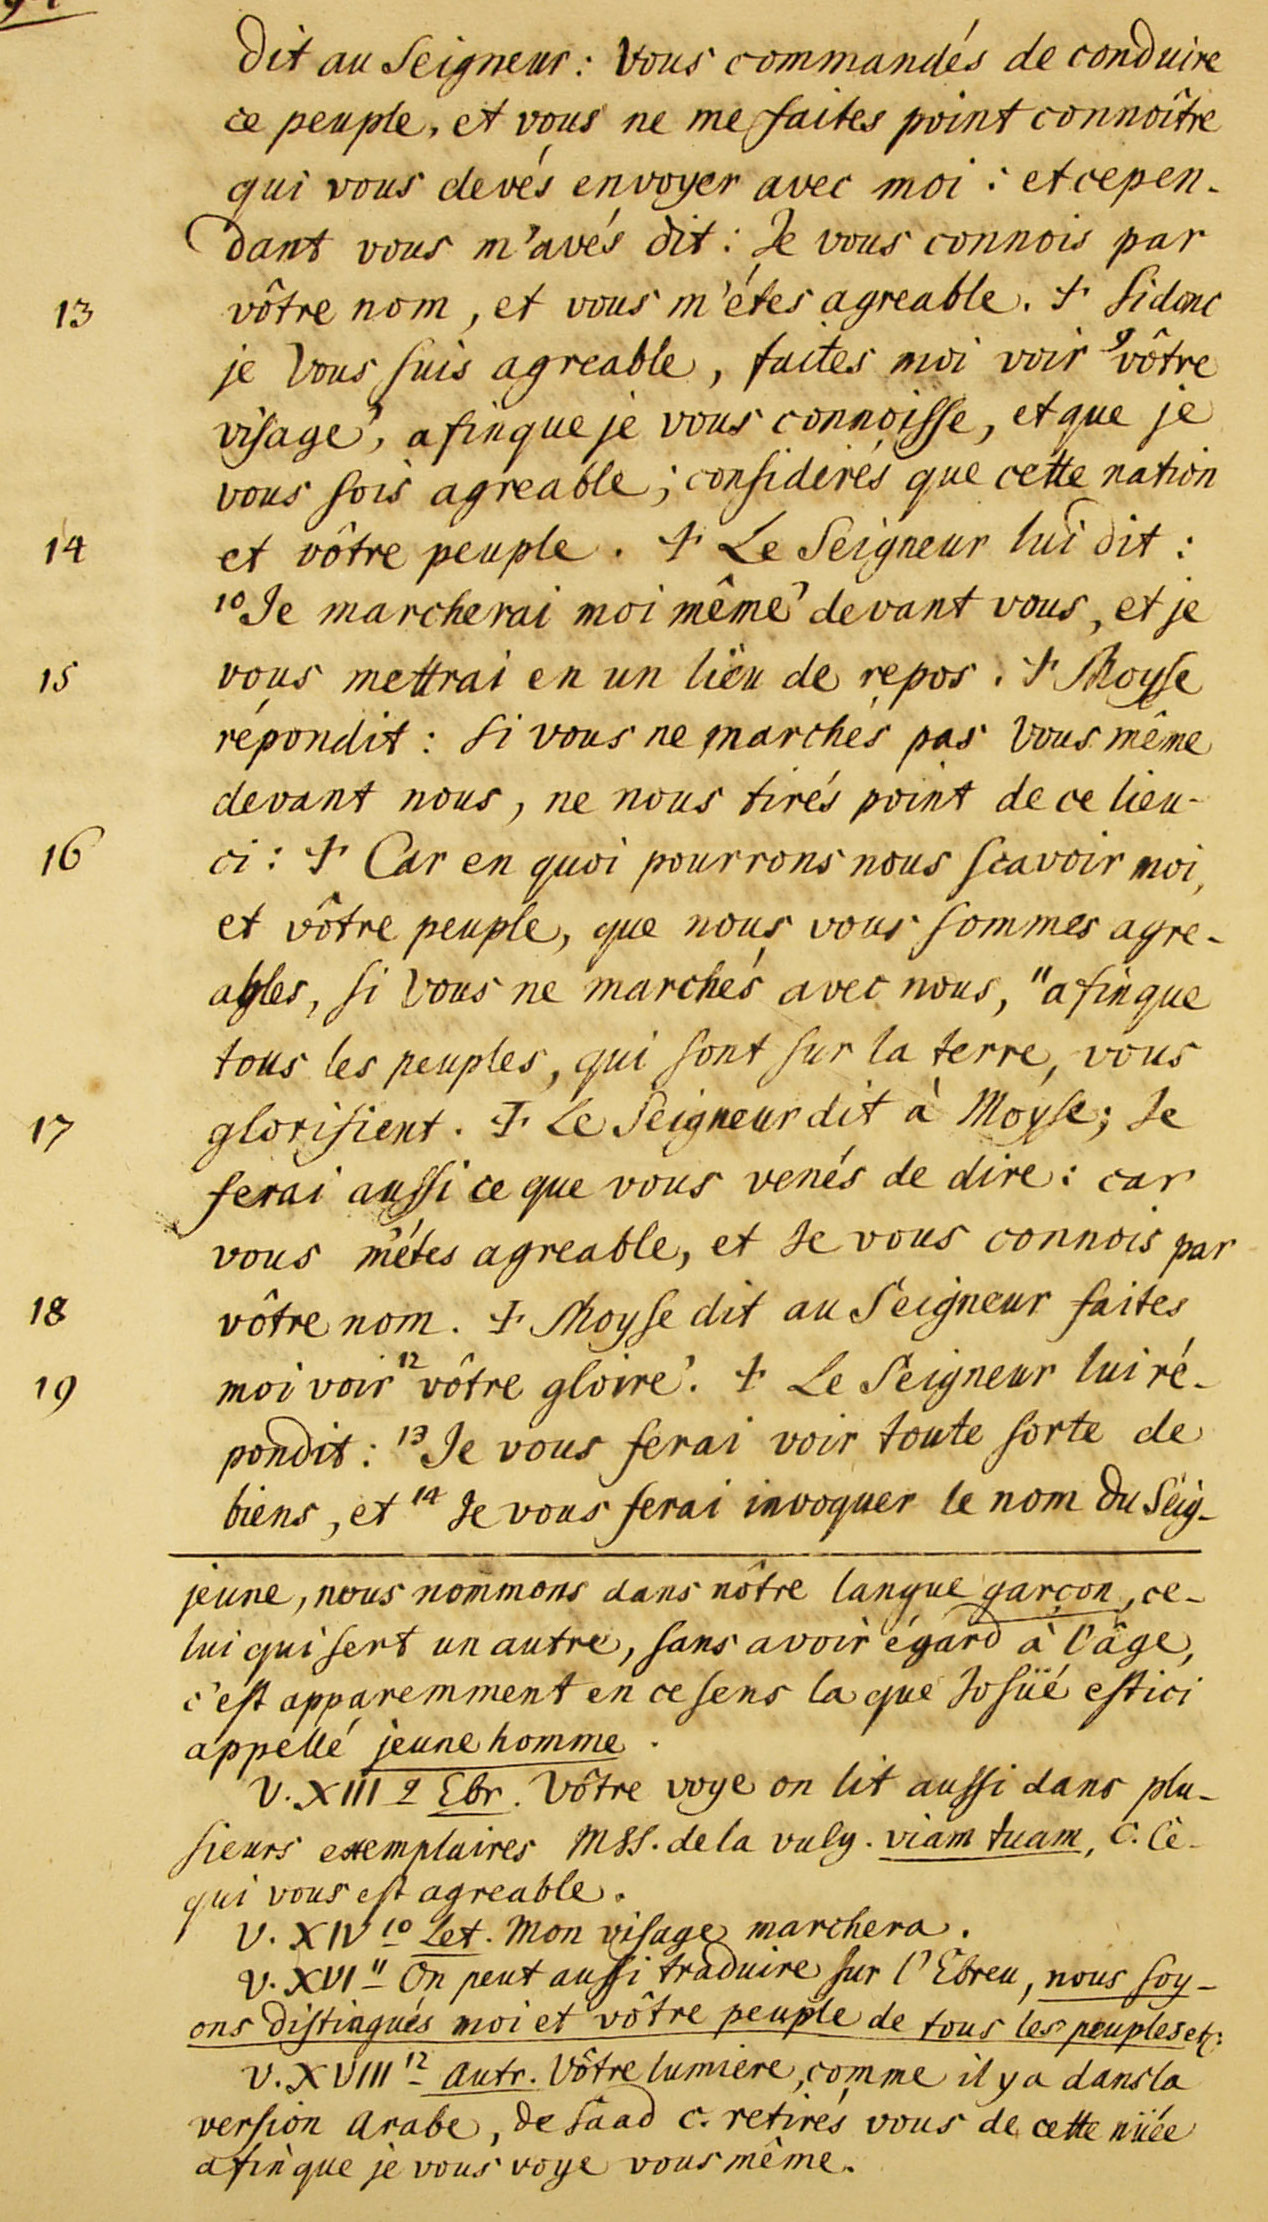 dit au Seigneur : Vous commandés de conduire
ce peuple, et vous ne me faites point connoître
qui vous devés envoyer avec moi : et cepen-
dant vous m'avés dit : Je vous connois par
13 vôtre nom, et vous m'étes agreable. + Si donc
je Vous suis agreable, faites moi voir ⁹vôtre
visage', afinque je vous connoisse, et que je
vous sois agreable ; considerés que cette nation
14 et vôtre peuple. + Le Seigneur lui dit :
¹⁰Je marcherai moi même' devant vous, et je
15 vous mettrai en un liëu de repos. + Moyse
répondit : si vous ne marchés pas Vous même
devant nous, ne nous tirés point de ce lieu-
16 ci : + Car en quoi pourrons nous scavoir moi,
et vôtre peuple, que nous vous sommes agre-
ables, si Vous ne marchés avec nous, ¹¹afinque
tous les peuples, qui sont sur la terre, vous
17 glorifient. + Le Seigneur dit à Moyse ; Je
ferai aussi ce que vous venés de dire : car
vous m'étes agreable, et Je vous connois par
18 vôtre nom. + Moyse dit au Seigneur faites
19 moi voir ¹²vôtre gloire'. + Le Seigneur lui ré-
pondit : ¹³Je vous ferai voir toute sorte de
biens, et ¹⁴ Je vous ferai invoquer le nom du Seig-
jeune, nous nommons dans nôtre langue garçon, ce-
lui qui sert un autre, sans avoir égard à l'âge,
c'est apparemment en ce sens la que Josüé est ici
appellé jeune homme.
V. XIII 9 Ebr. Vôtre voye on lit aussi dans plu-
sieurs exemplaires MSS. de la vulg. viam tuam, C. Ce-
qui vous est agreable.
V. XIV ¹⁰ Let. Mon visage marchera.
V. XVI ¹¹ On peut aussi traduire sur l'Ebreu, nous soy-
ons distingués moi et vôtre peuple de tous les peuples etc:
V. XVIII ¹² Autr. Vôtre lumiere, comme il y a dans la
version Arabe, de Säad c. retirés vous de cette nüée
afin que je vous voye vous même.